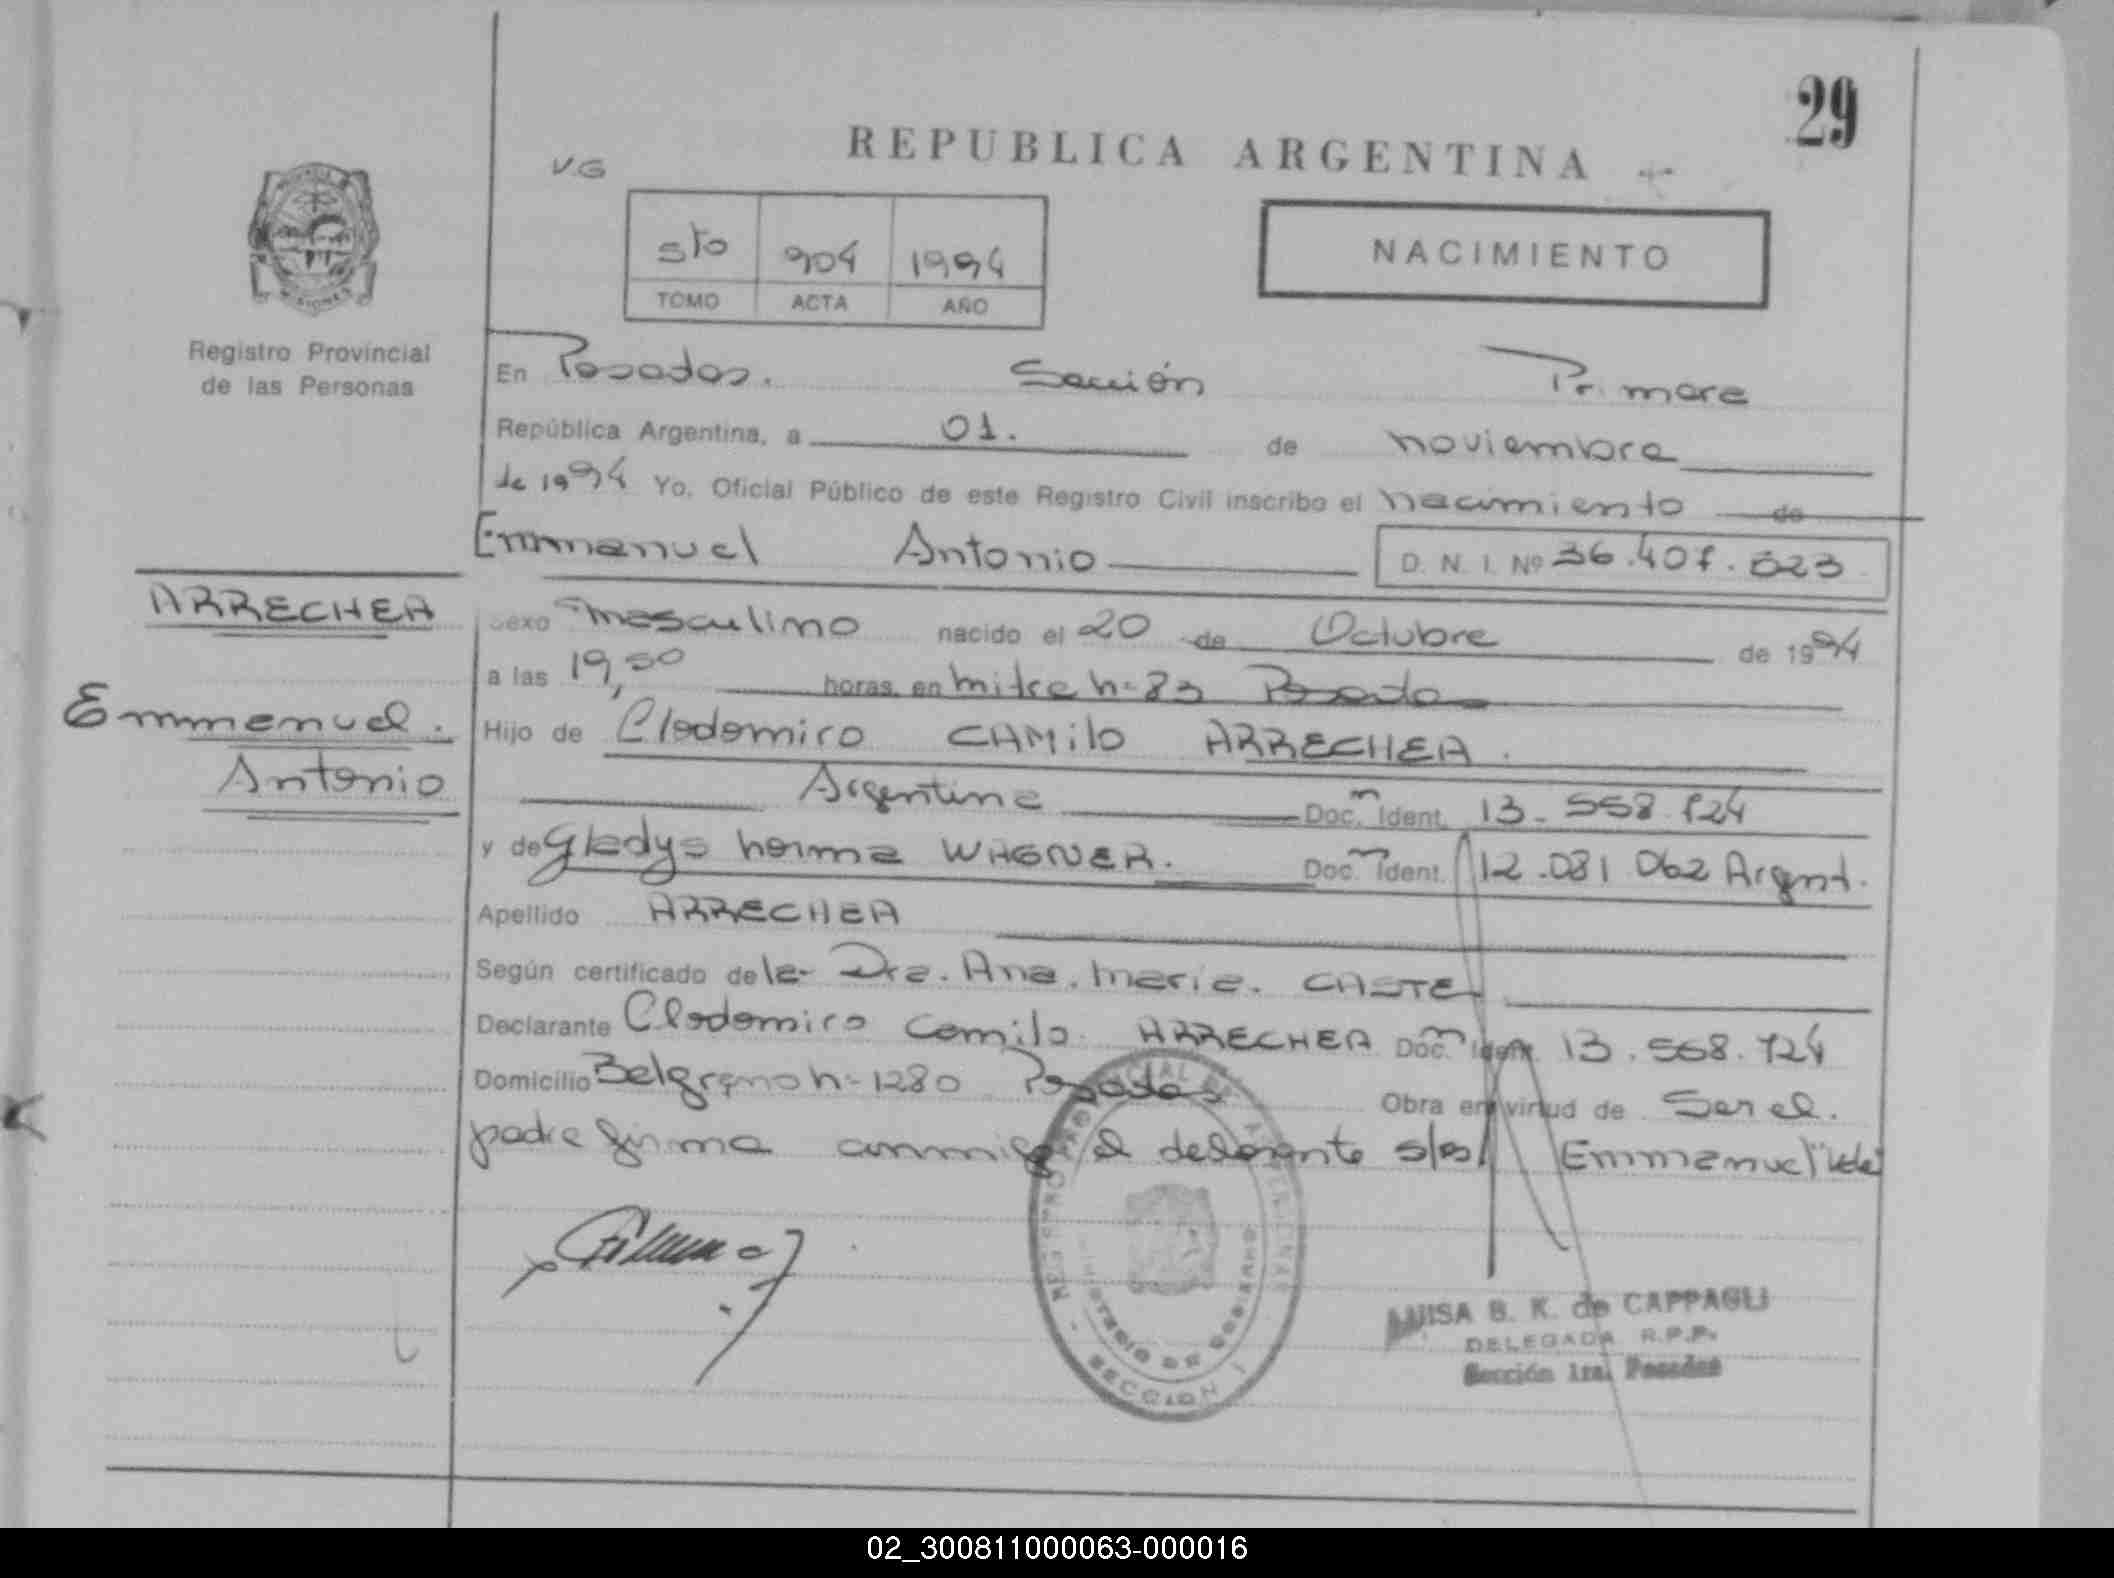 29
REPUBLICA ARGENTINA
V.G
5to 904 1994
TOMO ACTA AÑO
NACIMIENTO
Registro Provincial
de las Personas
En Posadas. Sección Primera
República Argentina, a 01. de noviembre
de 1994 Yo, Oficial Público de este Registro Civil inscribo el nacimiento de
Emmanuel Antonio D. N. I. Nº 36.407.523
ARRECHEA
Emmanuel.
Antonio
Sexo masculino nacido el 20 de Octubre de 1994
a las 19,50 horas, en mitre nº 83 Posadas
Hijo de Clodomiro CAMilo ARRECHEA.
Argentina Doc. Ident. 13.558.724
y de Gladys norma WAGNER. Doc. Ident. 12.081 062 Argent.
Apellido ARRECHEA
Según certificado de la Dra. Ana. maria. CASTEL
Declarante Clodomiro Camilo ARRECHEA Doc. Ident. 13.568.724
Domicilio Belgrano nº 1280 Posadas Obra en virtud de Ser el.
padre firma conmigo el declarante s/o/ Emmanuel"Vale
REGISTRO PROVINCIAL DE LAS PERSONAS
MINISTERIO DE GOBIERNO
SECCION 1
LUISA B. K. de CAPPAGLI
DELEGADA R.P.P.
Sección 1ra. Posadas
02_300811000063-000016